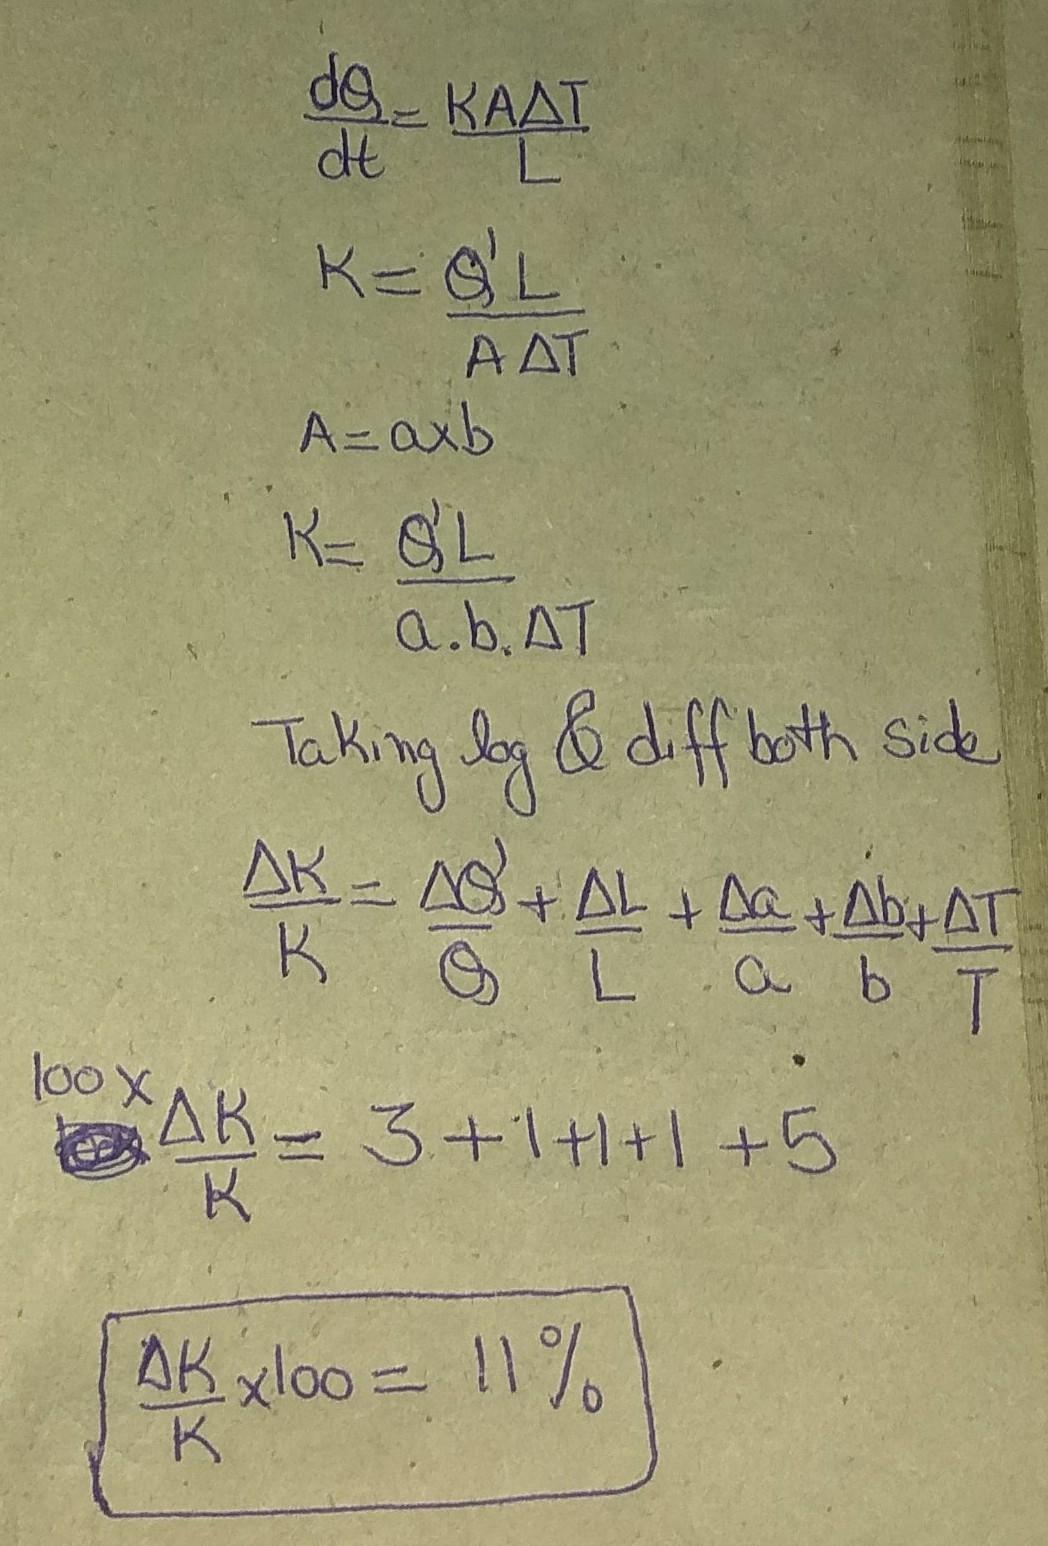 dQ/dt = KAΔT/L
K = Q'L/AΔT
A = a×b
K = Q'L/a.b.ΔT
Taking log & diff both side
ΔK/K = ΔQ'/Q + ΔL/L + Δa/a + Δb/b + ΔT/T
100 × ΔK/K = 3+1+1+1+5
ΔK/K ×100 = 11%